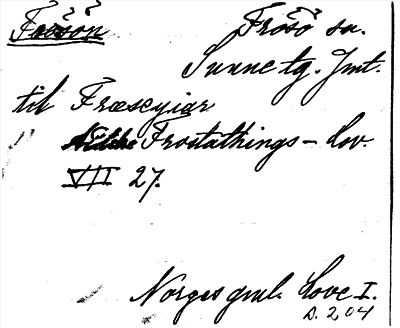 Frösön Frösö sn.
Sunne tg. Jmt.
til Fræseyiar
Frostathings-Lov.
VII 27.
Norges gml. Love I.
s. 204